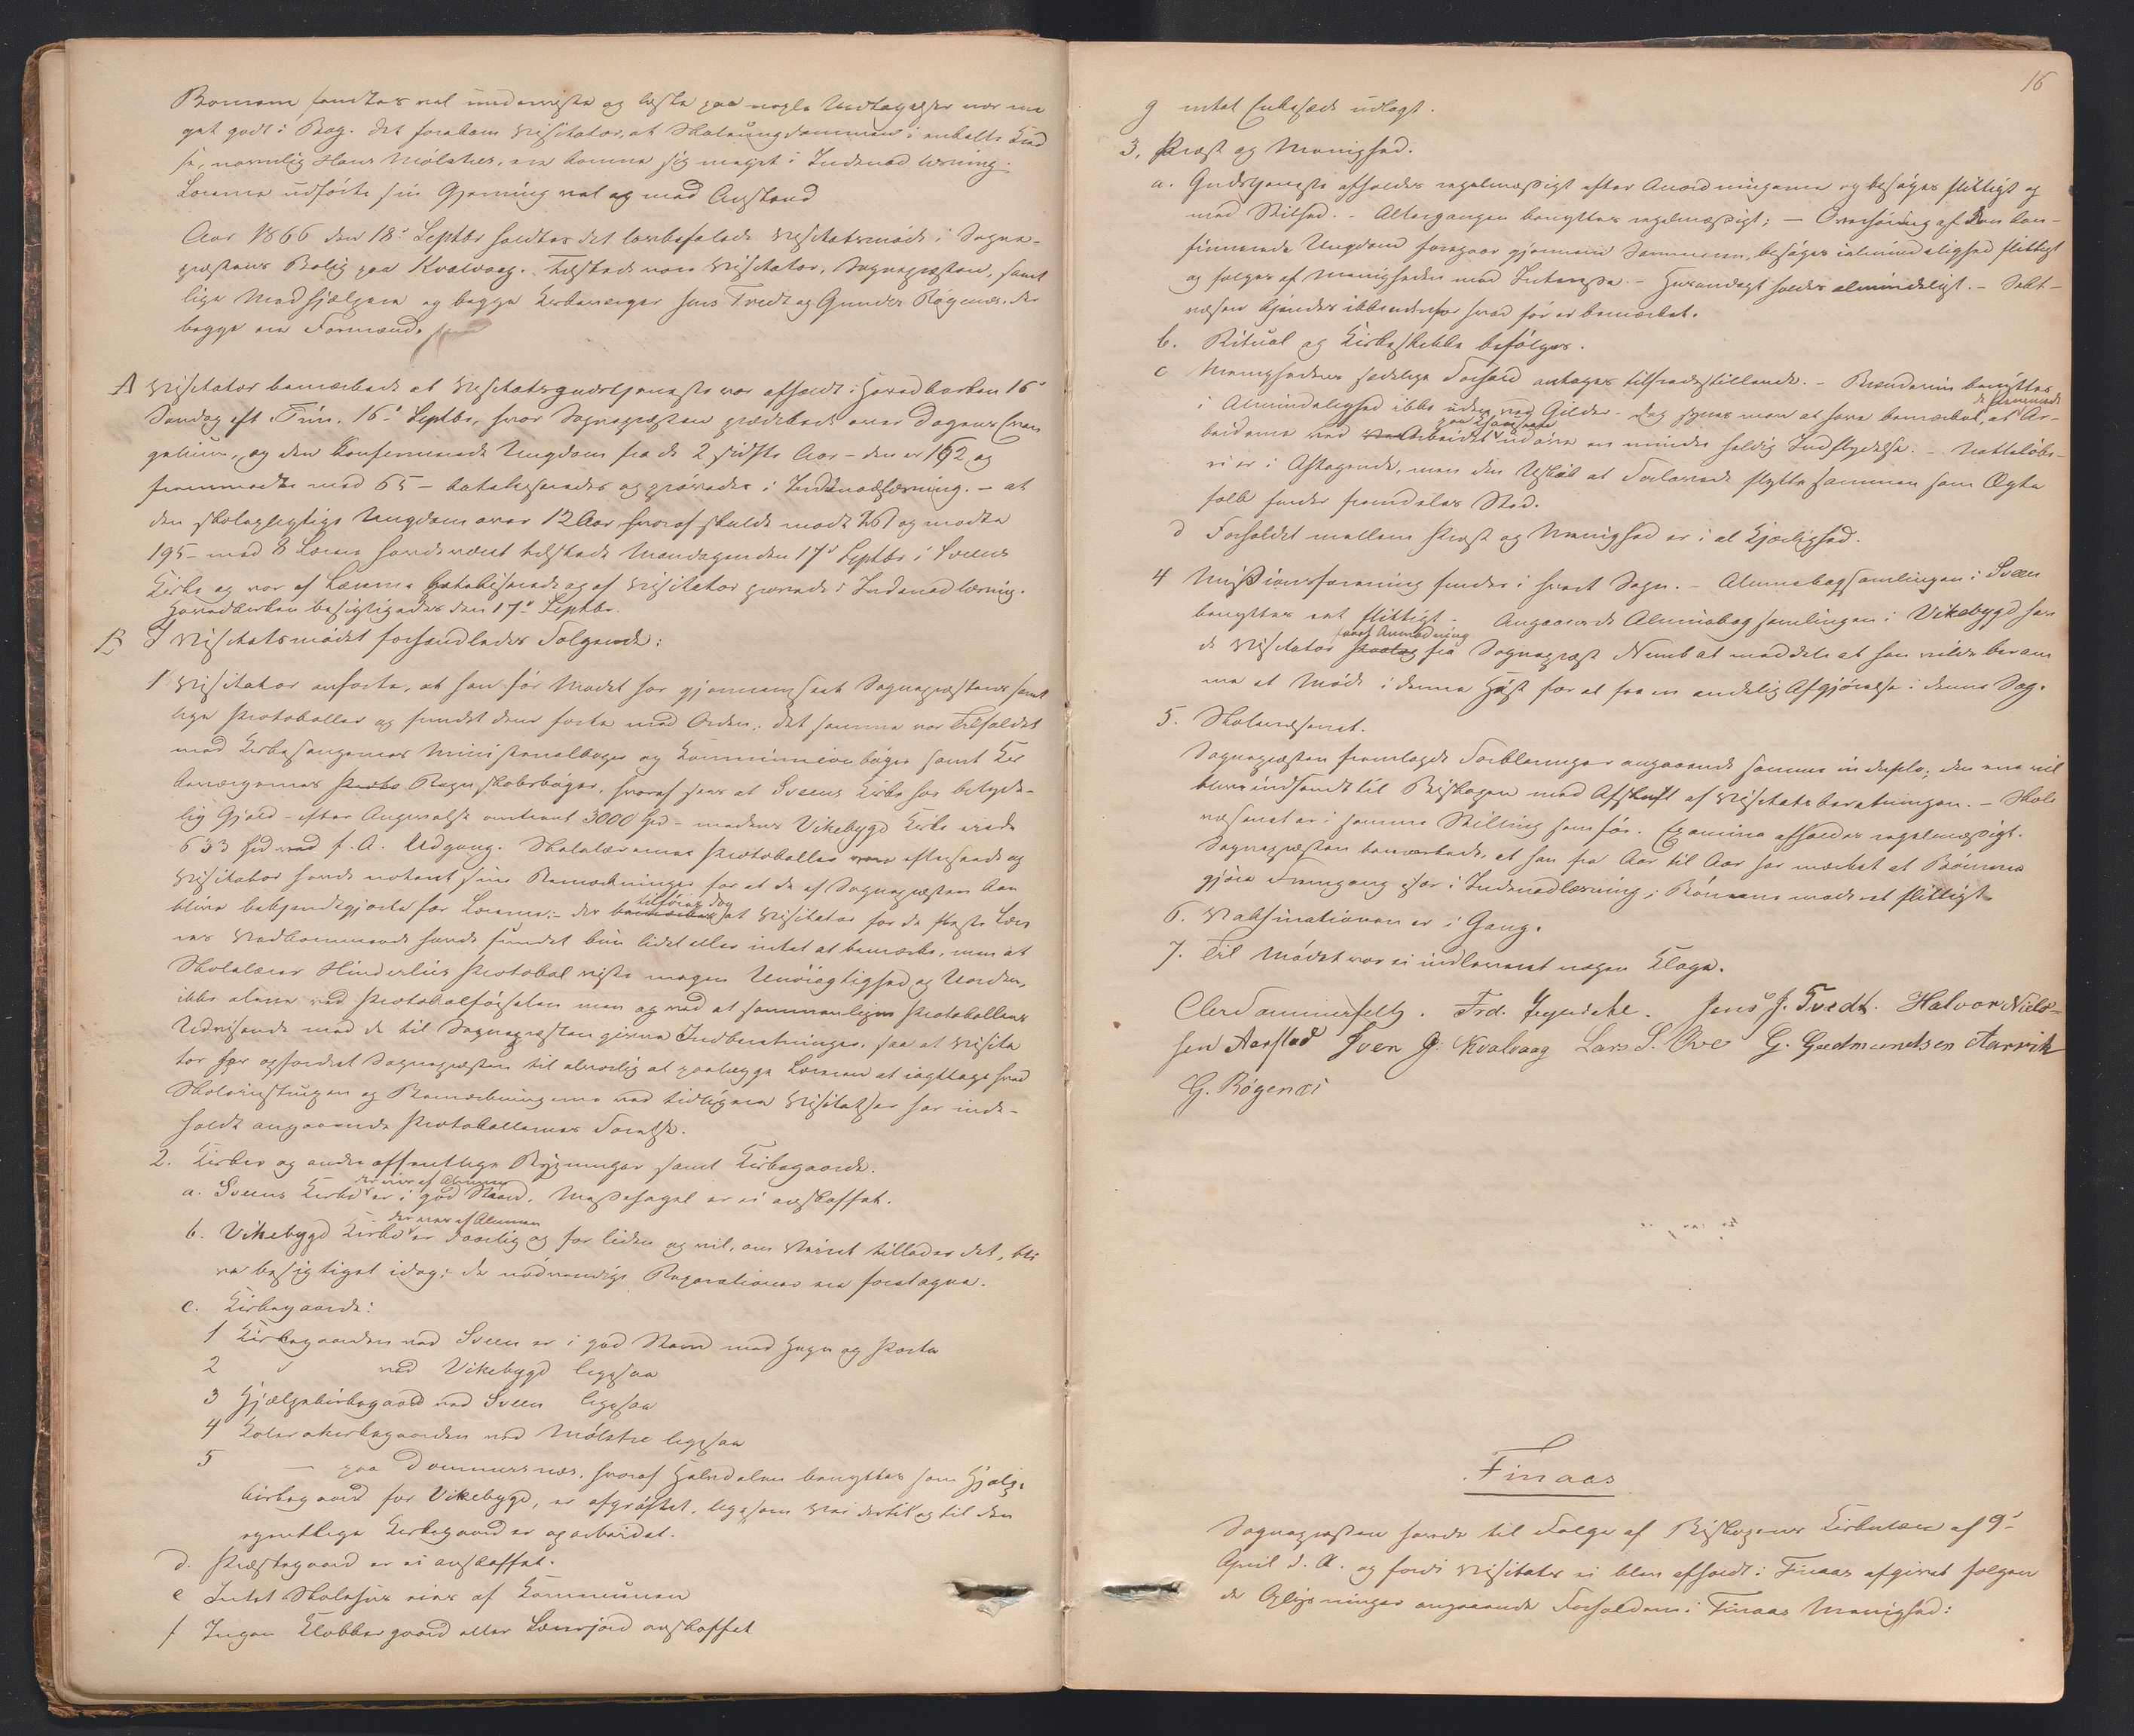 Börnene fandtes vel underviste og læste paa nogle Undtagelser nær me
get godt i Bog. Det forekom Visitator, at Skoleungdommen i enkelte Kred
se, navnlig Hans Mølstres, ere komne sig meget i Indenad læsning.
Lærerne udførte sin Gjerning vel og med Anstand
Aar 1866 den 18de Septbr holdtes det lovbefalede Visitatsmöde i Sogne-
præstens Bolig paa Kvalvaag. Tilstede vare Visitator, Sognepræsten, samt
lige Medhjælpere og begge Kirkeværger Jens Tvedt og Gunder Røgenæs, der
begge ere Formænd.
A Visitator bemærkede at Visitatsgudstjeneste var afholdt i Hovedkirken 16de
Søndag eft. Trin. 16de Septbr, hvor Sognepræsten prædikede over Dagens Evan
gelium, og den Confirmerede Ungdom fra de 2 sidste Aar – den er 162 og
fremmødte med 65 – katekiseredes og prøvedes i Indenadlæsning. – at
den skolepligtige Ungdom over 12 Aar, hvoraf skulde møde og mødte
195 – med 8 Lærere havde været tilstede Mandagen den 17de Septbr i Sveens
Kirke og var af Lærerne katekiseret og af Visitator prøvede i Indenad læsning.
Hovedkirken besigtigedes den 17de Septbr.
B I Visitatsmödet forhandledes Følgende:
1 Visitator anførte, at han för Mödet har gjennemseet Sognepræstens samt
lige Protokoller og fundet dem førte med Orden; det samme var Tilfældet
med Kirkesangernes Ministerialbøger og Communionbøger samt Kir
keværgernes Regnskabsbøger, hvoraf sees at Sveens Kirke har betyde-
lig Gjæld – efter Angivelse omtrent 3000 Spd – medens Vikebygd Kirke eiede
633 Spd ved f. A. Udgang. Skolelærernes Protokoller vare efterseede og
Visitator havde noteret sine Bemærkninger for at de af Sognepræsten kan
blive bekjendtgjorte for Lærerne; – der tilføies dog at Visitator for de fleste Lære
res Vedkommende havde fundet kun lidet eller intet at bemærke, men at
Skolelærer Hinderlies Protokol viste megen Unöiagtighed og Uorden,
ikke alene ved Protokolføرselen men og ved at sammenligne Protokollens
Udvisende med de til Sognepræsten givne Indberetninger, saa at Visita
tor har opfordret Sognepræsten til alvorlig at paalægge Læreren at iagttage hvad
Skoleinstruxen og Bemærkningerne ved tidligere Visitatser har inde-
holdt angaaende Protokollernes Førelse.
2. Kirker og andre offentlige Bygninger samt Kirkegaarde.
a. Sveens Kirke der eies af Almuen er i god Stand. Messehagel er ei anskaffet.
b. Vikebygd Kirke der eies af Almuen er daarlig og for liden og vil, om Veiret tillader det, bli
ve besigtiget idag; de nödvendige Reparationer ere foretagne.
c. Kirkegaarde:
1 Kirkegaarden ved Sveen er i god Stand med Hegn og Porte
2 " ved Vikebygd ligesaa
3 Hjælpekirkegaard ved Sveen ligesaa
4 Kolerakirkegaarden ved Mølstre ligesaa
5 — paa Dommersnæs, hvoraf Halvdelen benyttes som Hjælpe
kirkegaard for Vikebygd, er afgröftet, ligesom Vei dertil og til den
egentlige Kirkegaard er oparbeidet.
d. Præstegaard er ei anskaffet.
e Intet Skolehus eies af Kommunen
f Ingen Klokkergaard eller Lærerjord anskaffet
16
g intet Enkesæde udlagt.
3, Præst og Menighed.
a. Gudstjeneste afholdes regelmæssigt efter Anordningerne og besøges flittigt og
med Stilhed. – Altergangen benyttes regelmæssigt; – Overhöring af den kon-
firmerede Ungdom foregaar gjennem Sommeren, besøges i almindelighed flittigt
og følges af Menigheden med Interesse. – Husandagt holdes almindeligt. – Sekt-
væsen kjendes ikke udenfor hvad för er bemærket.
b. Ritual og Kirkeskikke befölges.
c Menighedens sædelige Forhold antages tilfredsstillende. – Brændeviin benyttes
i Almindelighed ikke uden ved Gilder – dog synes man at have bemærket, at de fremmede Ar-
beidere ved Arbeidet udöve en mindre heldig Indflydelse. – Natteløbe-
ri er i Aftagende, men den Uskik at Forlovede flytte sammen som Ægte
folk finder fremdeles Sted.
d Forholdet mellem Præst og Menighed er i al Kjærlighed.
4 Missionsforening findes i hvert Sogn. – Almuebogsamlingen i Sveen
benyttes ret flittigt – Angaaende Almuebogsamlingen i Vikebygd hav
de Visitator havt Anmodning fra Sognepræst Nimb at meddele at han vilde beram
me et Möde i denne Høst for at faa en endelig Afgjörelse i denne Sag.
5. Skolevæsenet.
Sognepræsten fremlagde Forklaringer angaaende samme in duplo; den ene vil
blive indsendt til Biskopen med Afskrift af Visitatsberetningen. – Skole
væsenet er i samme Stilling som før. Examina afholdes regelmæssigt.
Sognepræsten bemærkede, at han fra Aar til Aar har mærket at Börnene
gjöre Fremgang især i Indenadlæsning; Börnene møde ret flittigt.
6. Vaksinationen er i Gang.
7. Til Mödet var ei indleveret nogen Klage.
Chr. Sommerfelt. Frd. Jens J. Tvedt. Halvor Niels-
sen Aarstad Sven J. Kvalvaag Lars S. Ove G. Gudmundsen Aarvik
G. Rögenæs
Finaas
Sognepræsten havde til Følge af Biskopens Cirkulære af 9de
April d. A. og fordi Visitats ei blev afholdt i Finaas afgivet følgen
de Oplysninger angaaende Forholdene i Finaas Menighed: